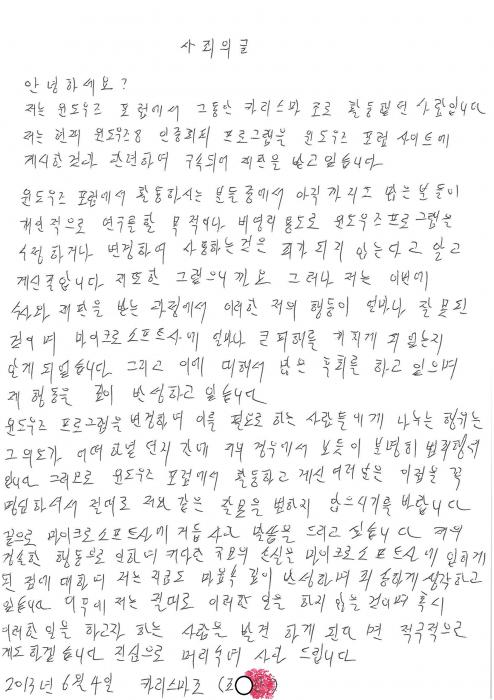 사죄의글
안녕하세요?
저는 윈도우즈 포럼에서 그동안 카리스마 조로 활동했던 사람입니다
저는 현재 윈도우즈8 인증회피 프로그램을 윈도우즈 포럼 사이트에
게시한것과 관련하여 구속되어 재판을 받고있습니다.
윈도우즈 포럼에서 활동하시는 분들중에서 아직까지도 많은 분들이
개인적으로 연구를할 목적이나 비영리 용도로 윈도우즈프로그램을
수정하거나 변경하여 사용하는것은 죄가 되지 않는다고 알고
계신줄압니다 저또한 그랬으니까요 그러나 저는 이번에
수사와 재판을 받는 과정에서 이러한 저의 행동이 얼마나 잘못된
것이며 마이크로소프트사에 얼마나 큰피해를 끼치게 되었는지
알게되었습니다 그리고 이에 대해서 많은 후회를 하고 있으며
제 행동을 깊이 반성하고 있습니다
윈도우즈 프로그램을 변경하여 이를 필요로 하는 사람들에게 나누는 행위는
그의도가 어떠하였던지 간에 저의 경우에서 보듯이 분명히 범죄행위
입니다 그러므로 윈도우즈 포럼에서 활동하고 계신 여러분은 이점을 꼭
명심하셔서 절대로 저와 같은 잘못을 범하지 않으시기를 바랍니다
끝으로 마이크로소프트사에 거듭 사과 말씀을 드리고 싶습니다 저의
경솔한 행동으로 인하여 커다란 손실을 마이크로소프트사에 입히게
된 점에 대하여 저는 지금도 마음속 깊이 반성하며 죄송하게 생각하고
있습니다 저는 절대로 이러한 일을 하지 않을 것이며 혹시
이러한일을 하고자 하는 사람을 발견하게 된다면 적극적으로
계도하겠습니다 진심으로 머리숙여 사과 드립니다
2013년 6월 4일 카리스마조